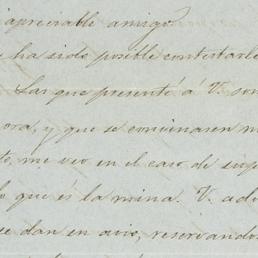 apreciable amigo:
ha sido posible contestarle
Las que presenté á V. son
ora, y que se convinasen
to, me veo en el caso de
lo que és la mina. V.
se dan en avio, reservandos